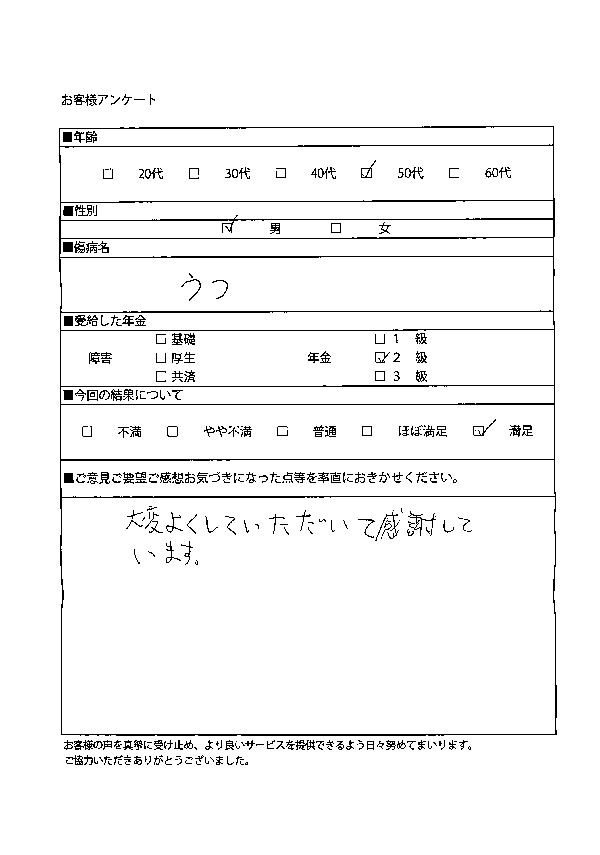 お客様アンケート
■年齢
□ 20代 □ 30代 □ 40代 ☑ 50代 □ 60代
■性別
☑ 男 □ 女
■傷病名
うつ
■受給した年金
□ 基礎 □ 1 級
障害 □ 厚生 年金 ☑ 2 級
□ 共済 □ 3 級
■今回の結果について
□ 不満 □ やや不満 □ 普通 □ ほぼ満足 ☑ 満足
■ご意見ご要望ご感想お気づきになった点等を率直におきかせください。
大変よくしていただいて感謝して
います。
お客様の声を真摯に受け止め、より良いサービスを提供できるよう日々努めてまいります。
ご協力いただきありがとうございました。